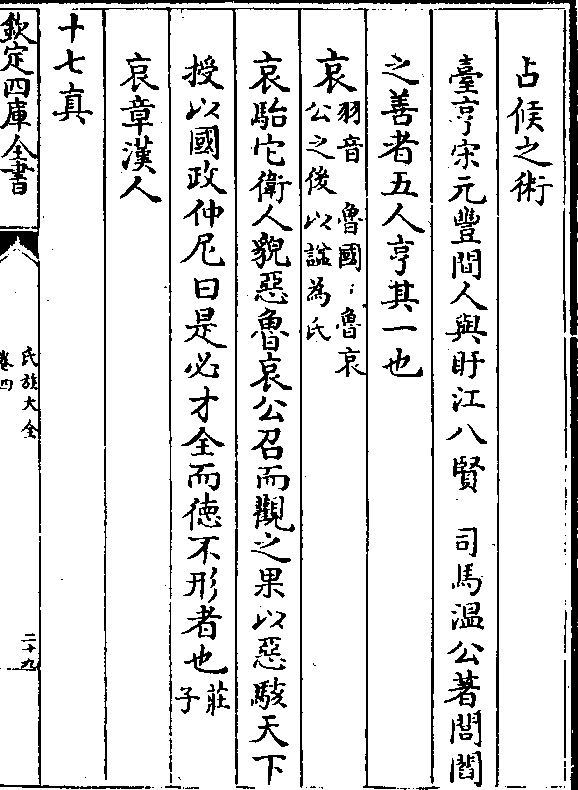 占候之術
臺亨宋元豐間人與盱江八賢 司馬温公著閭閻
之善者五人亨其一也
哀羽音 魯國魯哀公之後以諡為氏
哀駘它衛人貌惡魯哀公召而觀之果以惡駭天下
授以國政仲尼曰是必才全而徳不形者也莊子
哀章漢人
十七真
欽定四庫全書
氏族大全
卷四
二十九